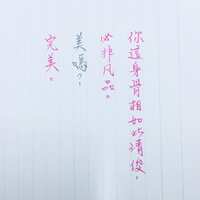 你這身骨相如此清俊。
必非凡品。
美嗎?,
完美。